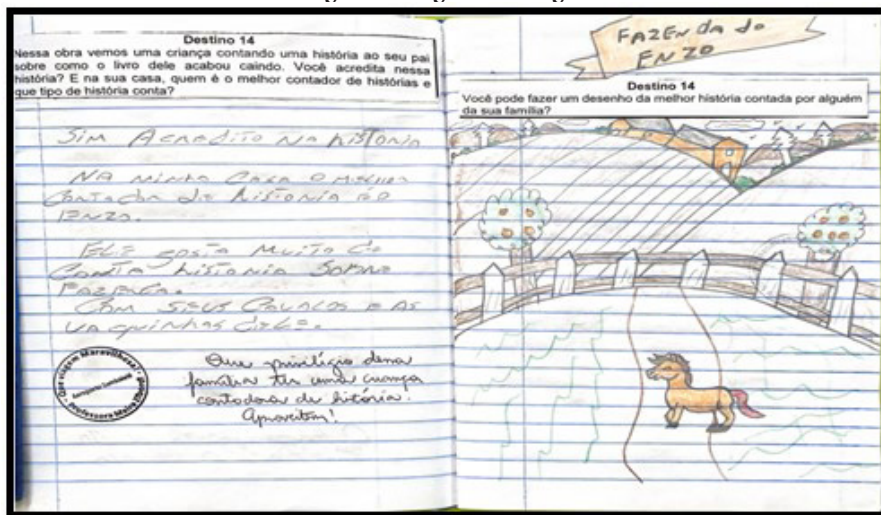 Destino 14
Nessa obra vemos uma criança contando uma história ao seu pai
sobre como o livro dele acabou caindo. Você acredita nessa
história? E na sua casa, quem é o melhor contador de histórias e
que tipo de história conta?
SIM Acredito na história
NA minha Casa o melhor
Contador de história é o
ENZO.
Ele gosta Muito de
Conta história Sobre
Fazenda.
Com SEUS CAVALOS E AS
VAquinhas dele.
Que viagem Maravilhosa!
Professora
Que privilégio dessa
família ter uma criança
contadora de história.
Aproveitem!
FAZENda do
ENZO
Destino 14
Você pode fazer um desenho da melhor história contada por alguém
da sua família?